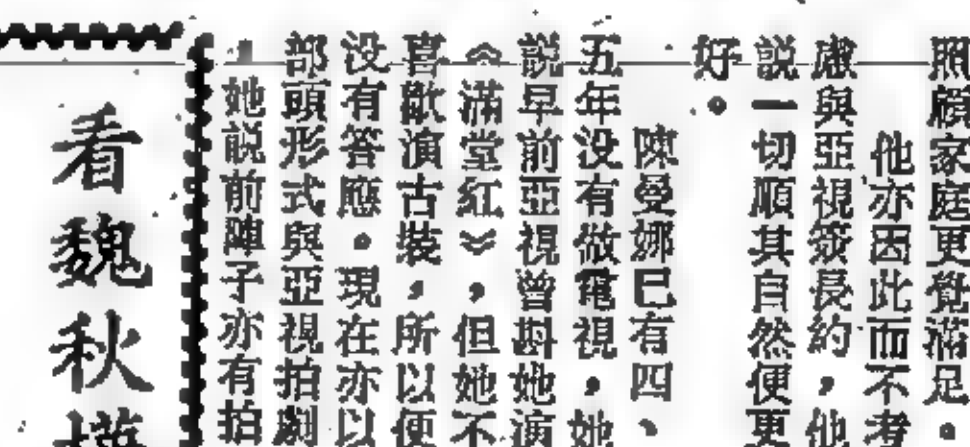 照顧家庭更覺滿足。
他亦因此而不考
慮與亞視簽長約，他
説一切順其自然便更
好。
陳曼娜已有四、
五年没有做電視，她
説早前亞視曾斟她演
《滿堂紅》，但她不
喜歡演古裝，所以便
没有答應。現在亦以
部頭形式與亞視拍劇
，她説前陣子亦有拍
看魏秋